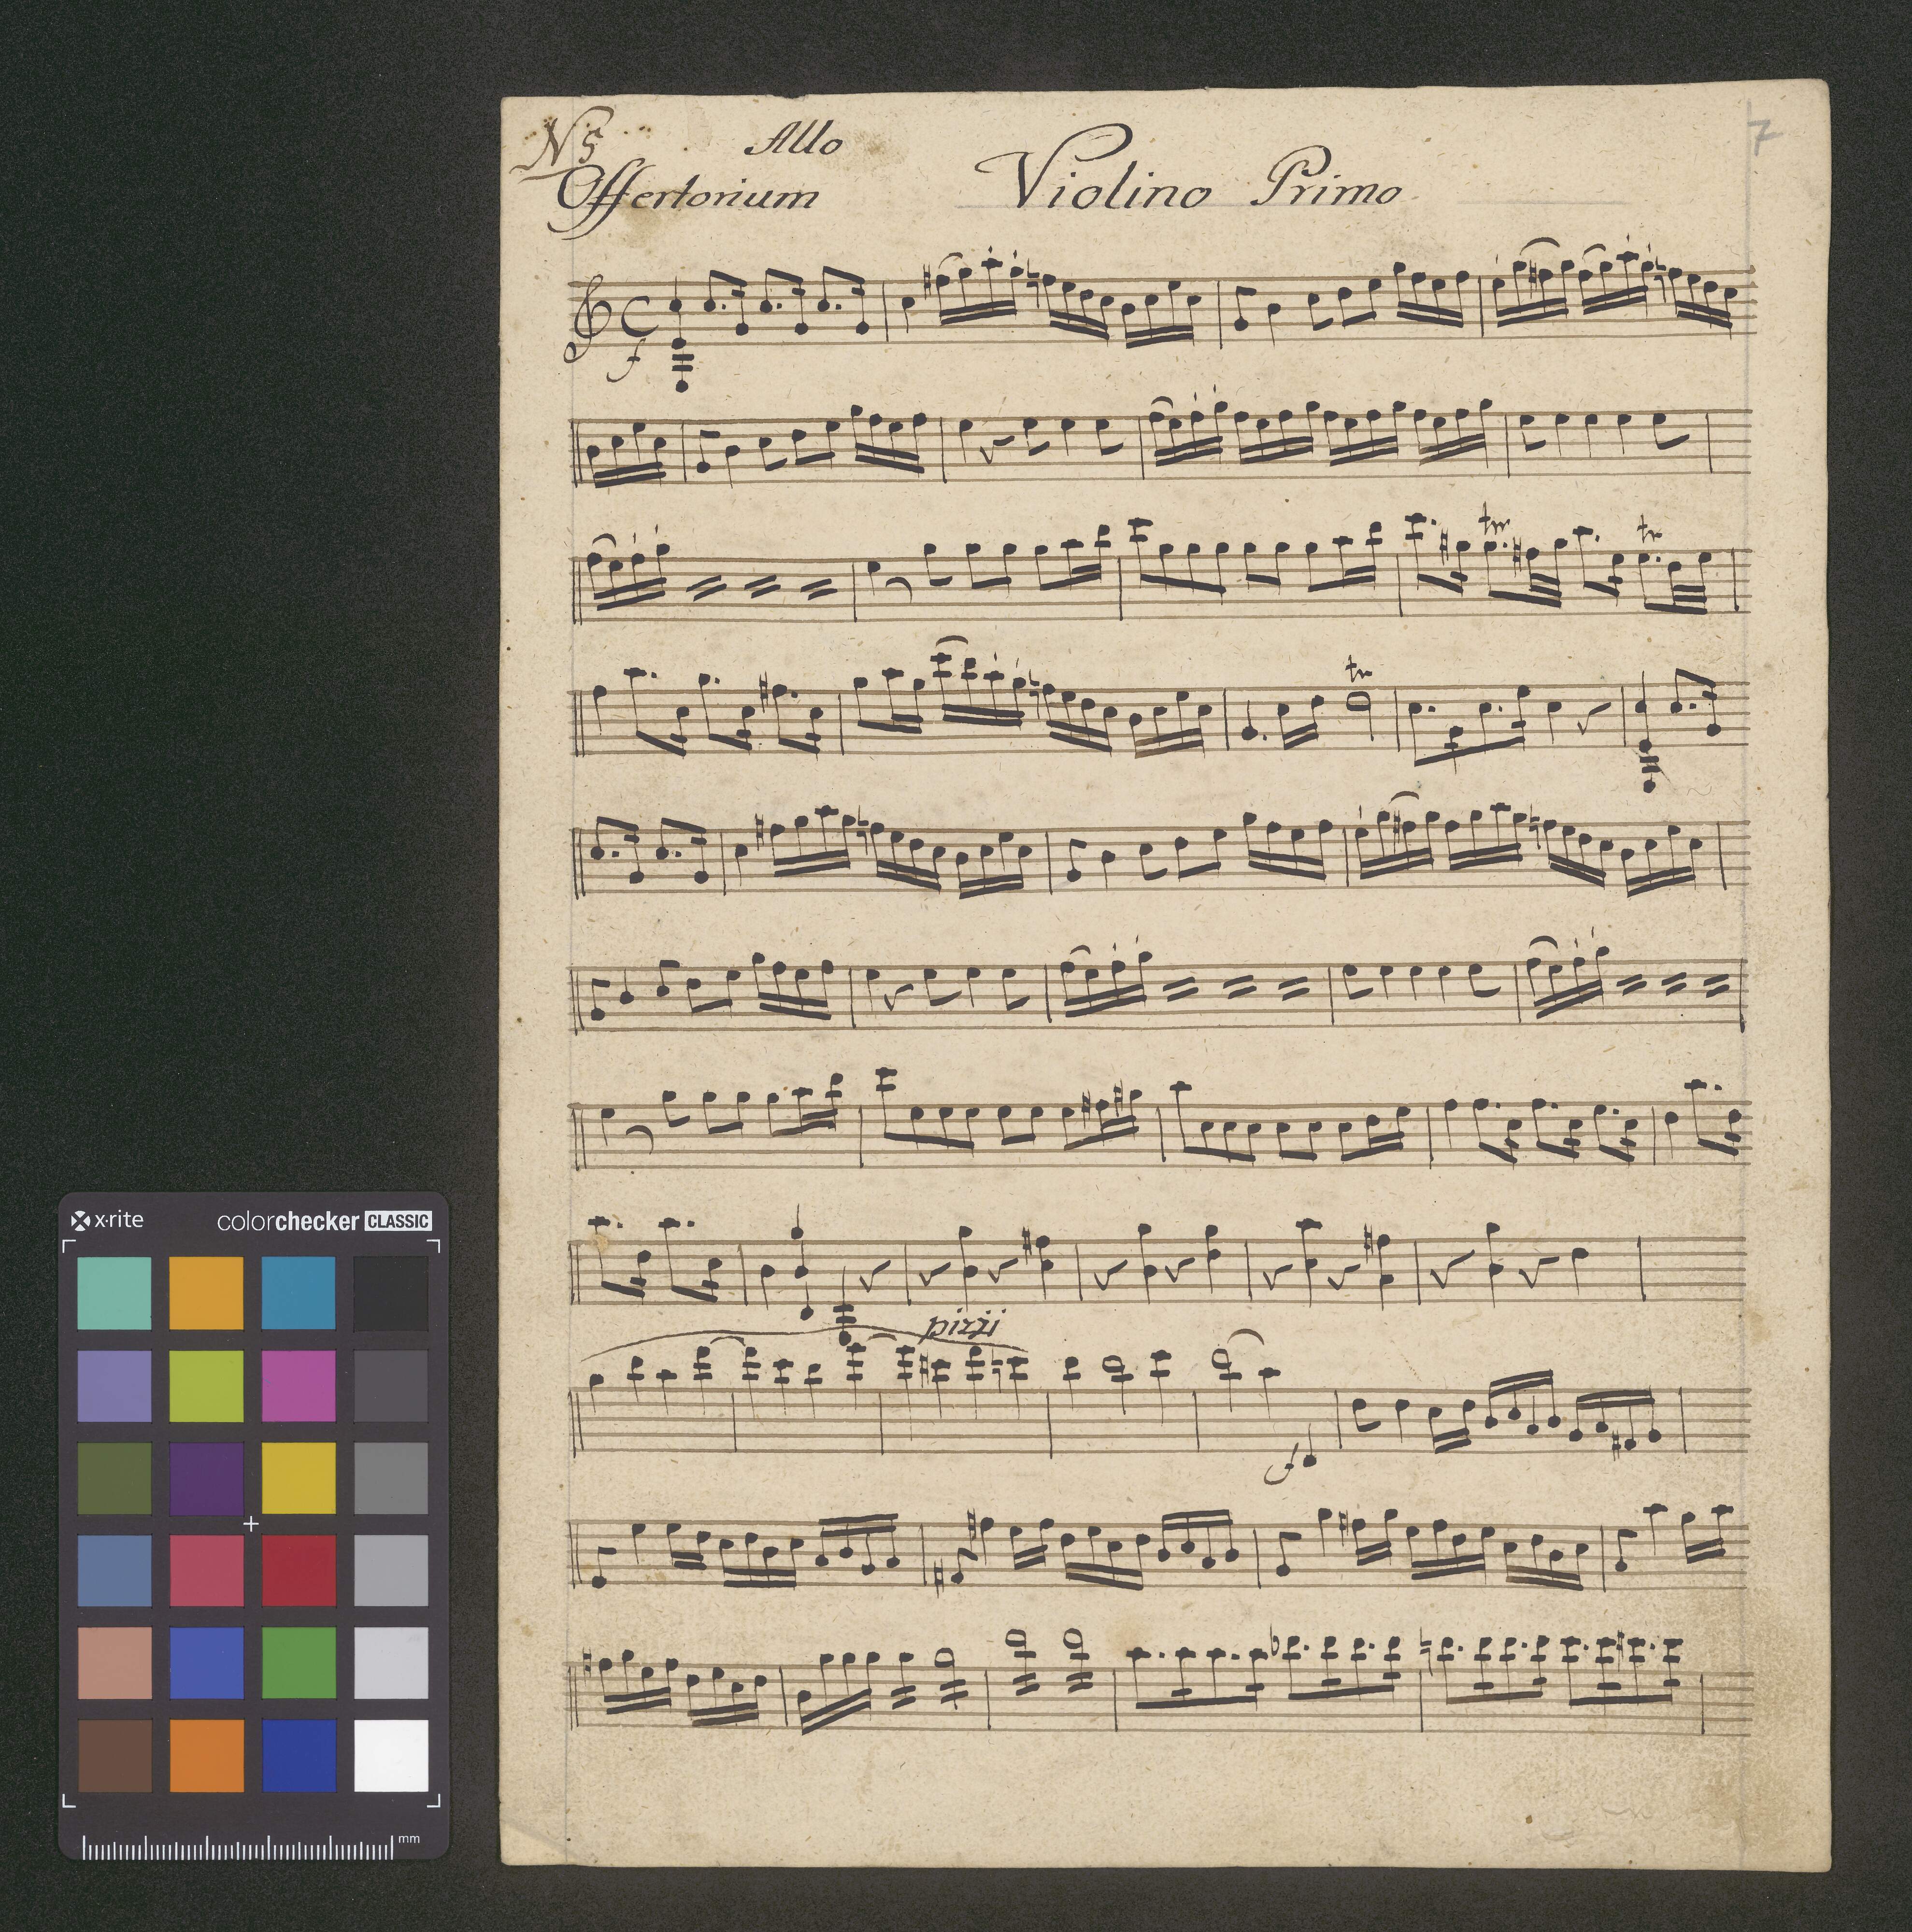 N 5 Allo 7
Offertorium Violino Primo
f
tr tr
tr
pizzi
f
x·rite colorchecker CLASSIC
mm